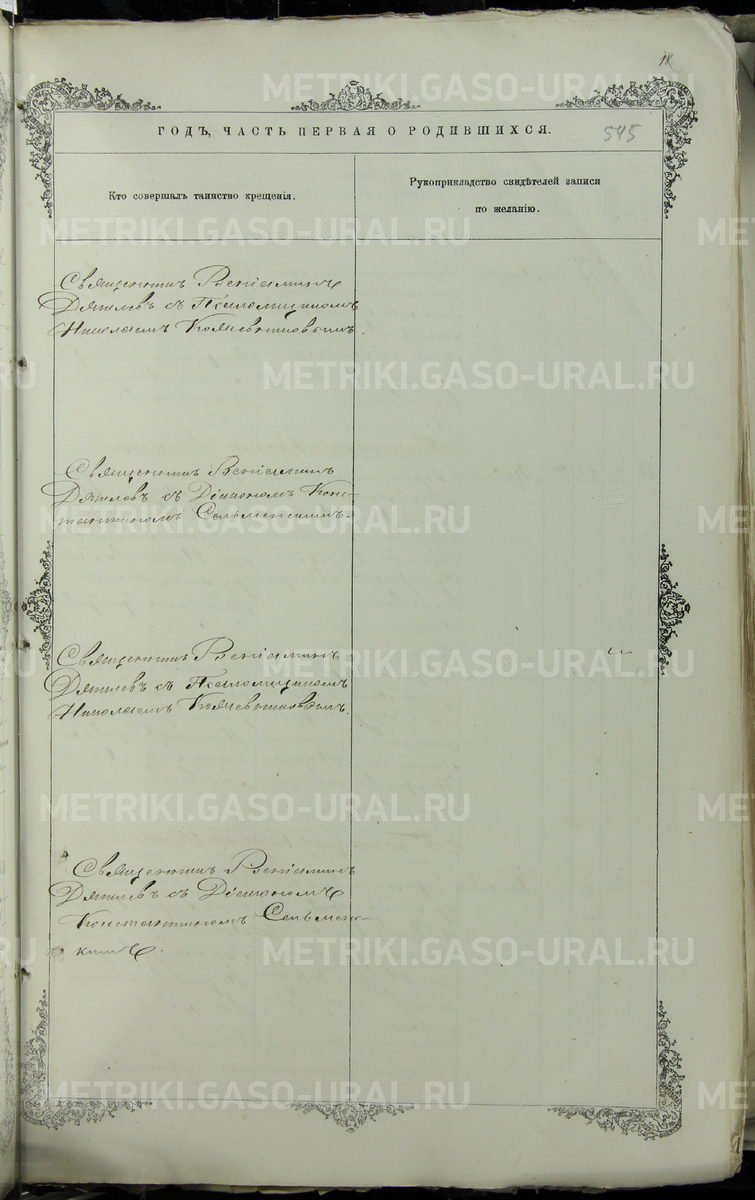 18
METRIKI.GASO-URAL.RU
ГОДЪ, ЧАСТЬ ПЕРВАЯ О РОДИВШИХСЯ.
545
Кто совершалъ таинство крещенія.
Рукоприкладство свидѣтелей записи
по желанію.
METRIKI.GASO-URAL.RU
Священникъ Веніаминъ
Дягилевъ съ Псаломщикомъ
Николаемъ
METRIKI.GASO-URAL.RU
Священникъ Веніаминъ
Дягилевъ съ Діакономъ Конс-
тантиномъ
METRIKI.GASO-URAL.RU
Священникъ Веніаминъ
METRIKI.GASO-URAL.RU
Дягилевъ съ Псаломщикомъ
Николаемъ
METRIKI.GASO-URAL.RU
Священникъ Веніаминъ
Дягилевъ съ Діакономъ
Константиномъ
METRIKI.GASO-URAL.RU
METRIKI.GASO-URAL.RU